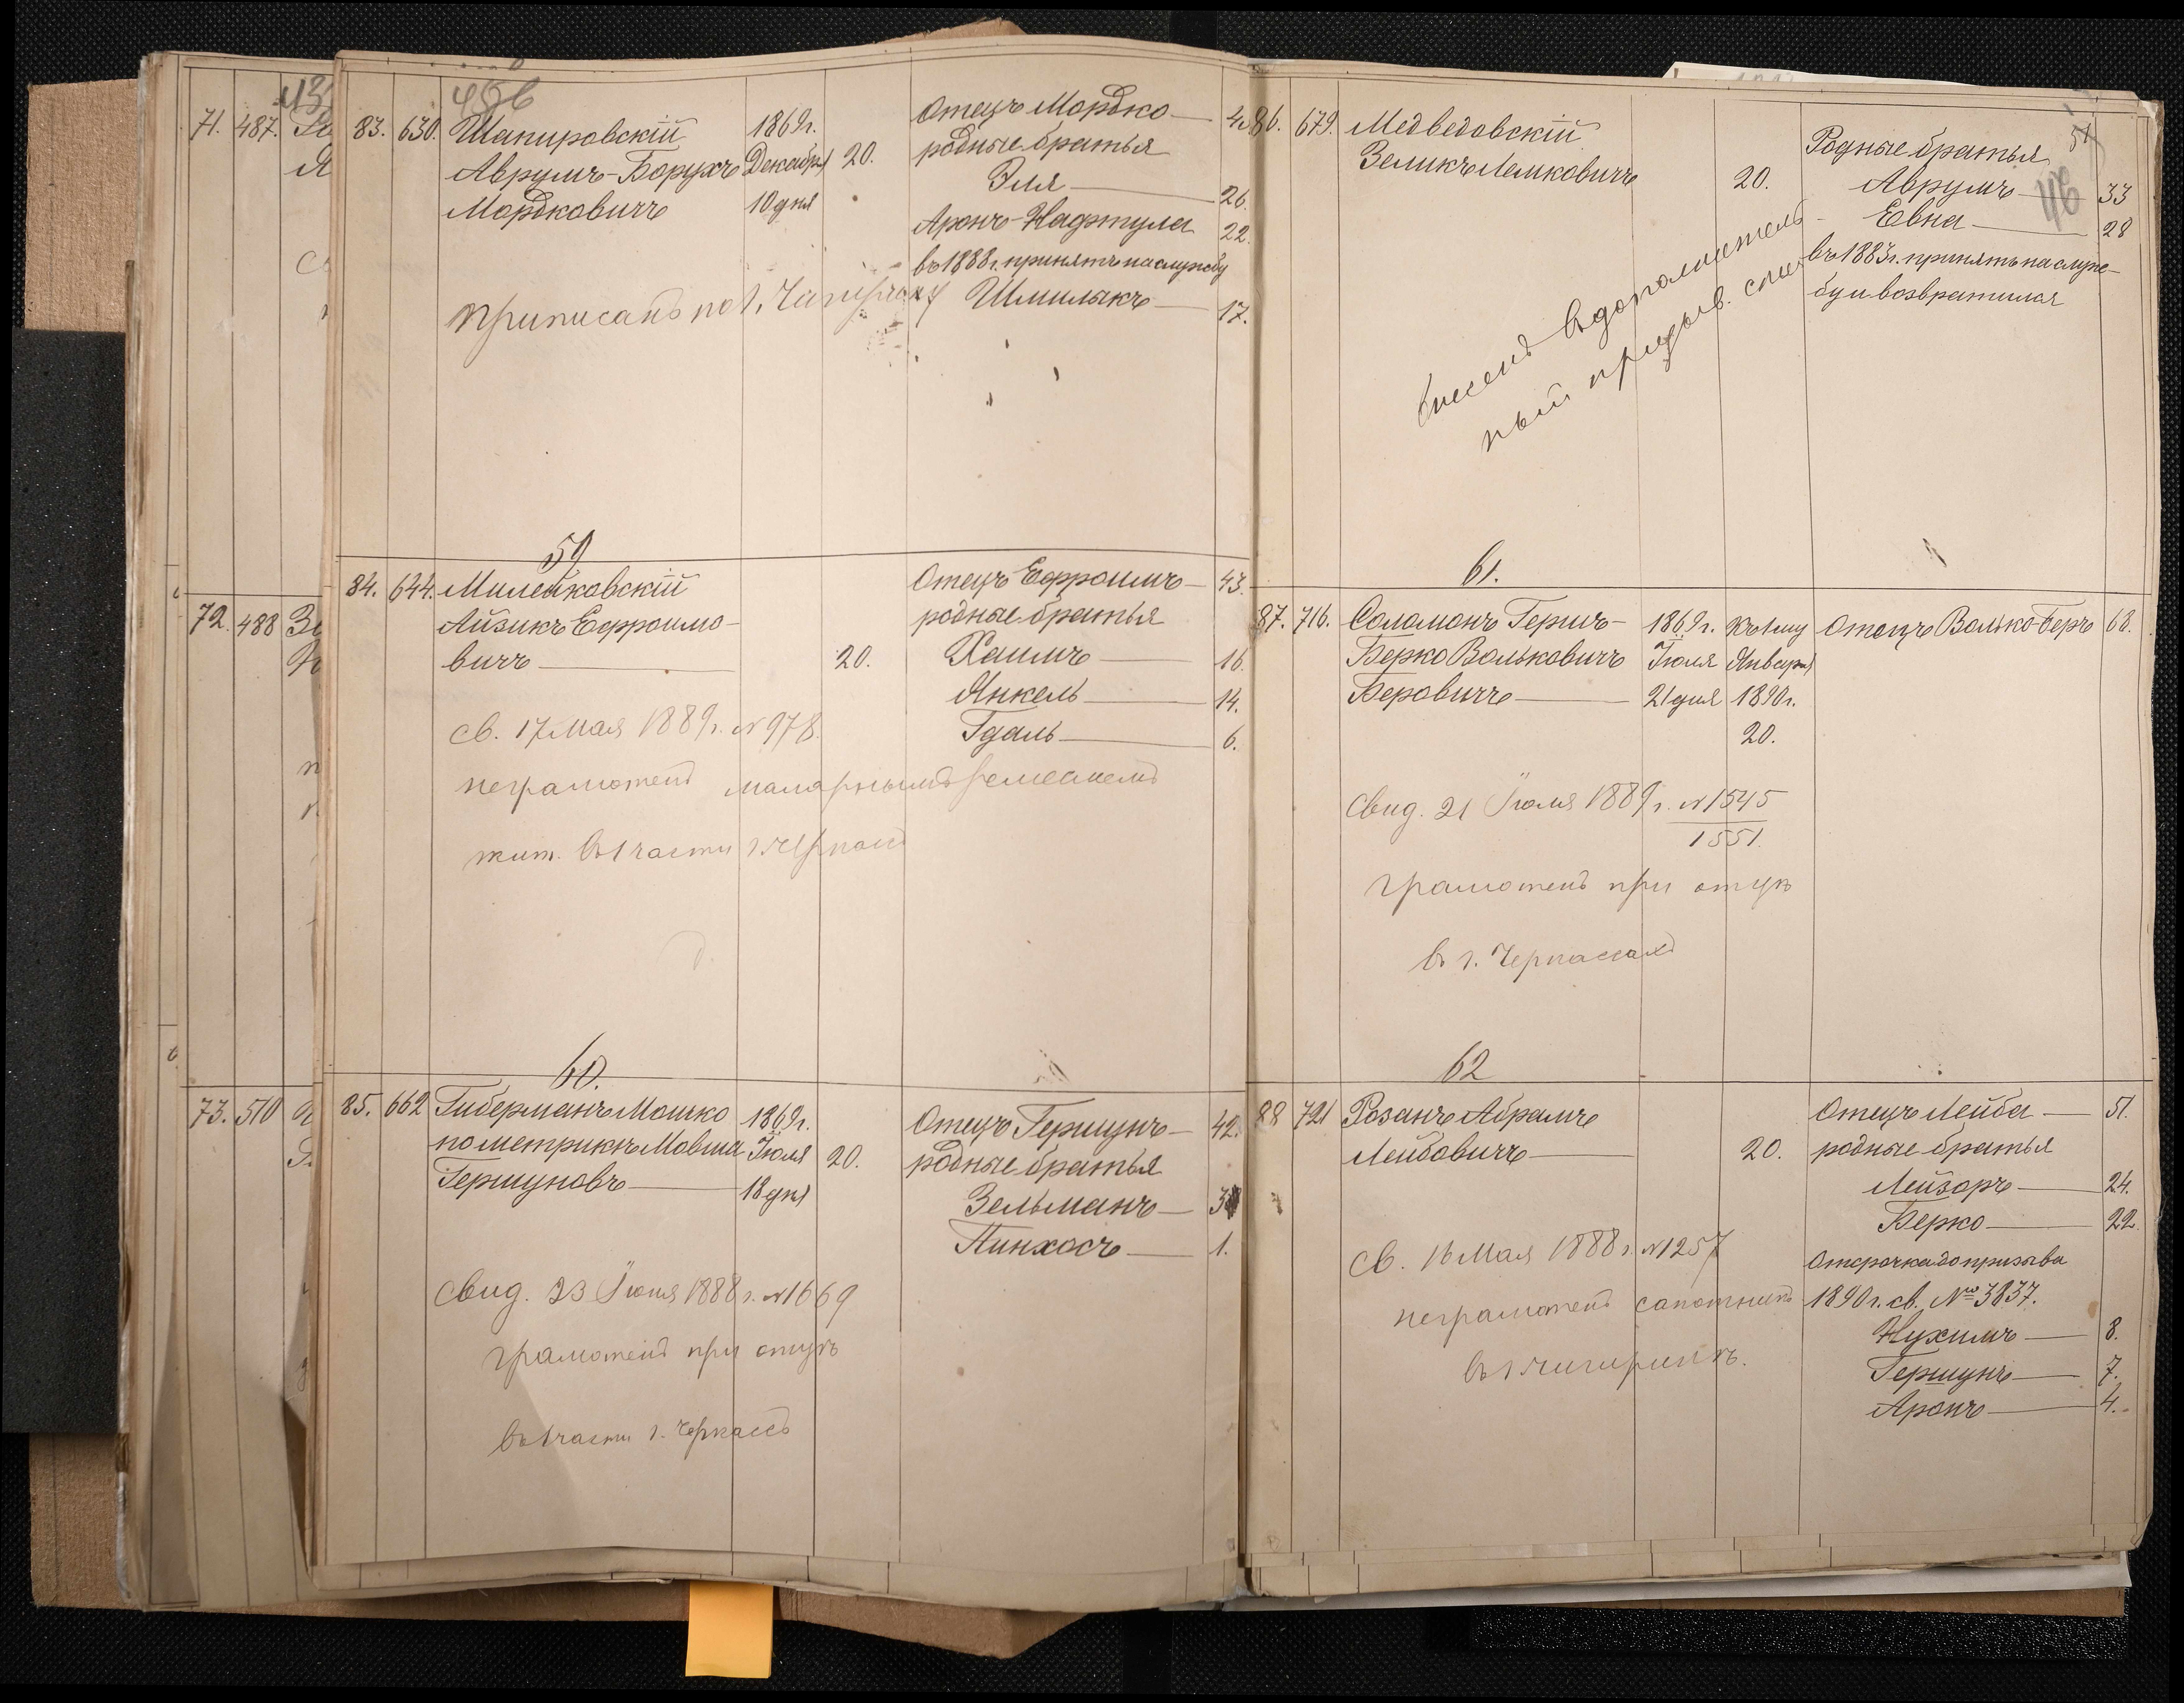 71. 487.
72. 488
73. 510
456
83. 630. Шапировскій
Аврумъ-Борухъ
Мордковичъ
1869 г.
Декабря
10 дня
20.
Отецъ Мордко —
родные братья
Эля — 26.
Аронъ-Нафтула 22.
въ 1888 г. принятъ на службу
Шмилыкъ — 17.
приписанъ по г.
59
84. 644. Милейковскій
Айзикъ Ефроимо-
вичъ — 20.
Отецъ Ефроимъ — 43.
родные братья
Хаимъ — 16.
Янкель — 14.
Гдаль — 6.
св. 17 Мая 1889 г. № 978.
неграмотенъ малярнымъ
жит. въ 1 части г.
60.
85. 662 Гиберманъ Мошко
по метрикѣ Мовша
Гершуновъ —
1869 г.
Іюля
18 дня
20.
Отецъ Гершунъ — 42.
родные братья
Зельманъ —
Пинхосъ — 1.
Свид. 23 Іюня 1888 г. № 1669
грамотенъ при отцѣ
въ 1 части г. Черкассъ
51
46
86. 679. Медведовскій
Зеликъ Лемковичъ
20.
Родные братья
Аврумъ — 33
Евна — 28
въ 1883 г. принятъ на служ-
бу и возвратился
внесенъ въ дополнитель-
ный призыв. спис
61.
87. 716. Соломонъ Гершъ-
Берко Вольковичъ
Беровичъ —
1869 г.
Іюля
21 дня
Къ 1му
Января
1890 г.
20.
Отецъ Волько-Беръ 68.
Свид. 21 Іюля 1889 г. № 1545
1551.
грамотенъ при отцѣ
въ г. Черкассахъ
62
88 721 Розанъ Абрамъ
Лейбовичъ — 20.
Отецъ Лейба — 51.
родные братья
Лейзоръ — 24.
Берко — 22.
Отсрочка до призыва
1890 г. св. № 3837.
Нухимъ — 8.
Гершунъ — 7.
Аронъ — 4.
св. 16 Мая 1888 г. № 1257
неграмотенъ сапожникъ
въ г. Чигиринѣ.